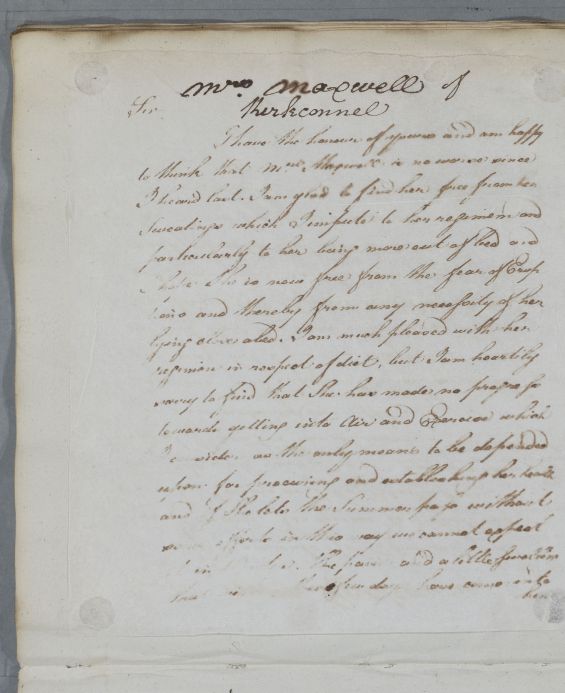 Mrs. Maxwell of
Kirkconnel
Sir
I have the honour of yours and am happy
to think that Mrs. Maxwell is no worse since
I heard last. I am glad to find her free from her
Sweatings which I impute to her regimen and
particularly to her being more out of bed and
I hope She is now free from the fear of
and thereby from any necessity of her
lying abed. I am much pleased with her
regimen in respect of diet, but I am heartily
sorry to find that She has made no progress
towards getting into Air and Exercise which
I consider as the only means to be depended
upon for preserving and establishing her health
and if She lets the Summer pass without
some efforts in this way we cannot expect
it in The pain and a little
that few days have come into
her